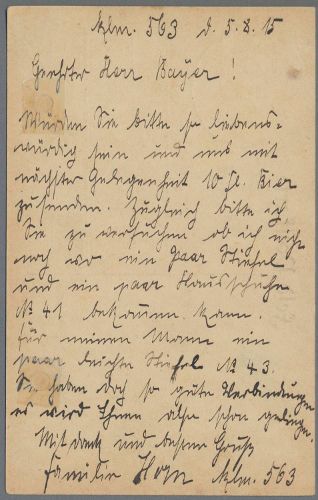 Klm. 563 d. 5.8.15
Geehrter Herr Bayer!
Würden Sie bitte so liebens-
würdig sein und uns mit
nächster Gelegenheit 10 Fl. Bier
zusenden. Zugleich bitte ich
Sie zu versuchen ob ich nicht
noch wo ein paar Stiefel
und ein paar Hausschuhe
№ 41 bekommen kann.
für meinen Mann ein
paar leichte Stiefel № 43.
Sie haben doch so gute Verbindungen
es wird Ihnen schon gelingen.
Mit Dank und bestem Gruß
Familie Horn Klm. 563